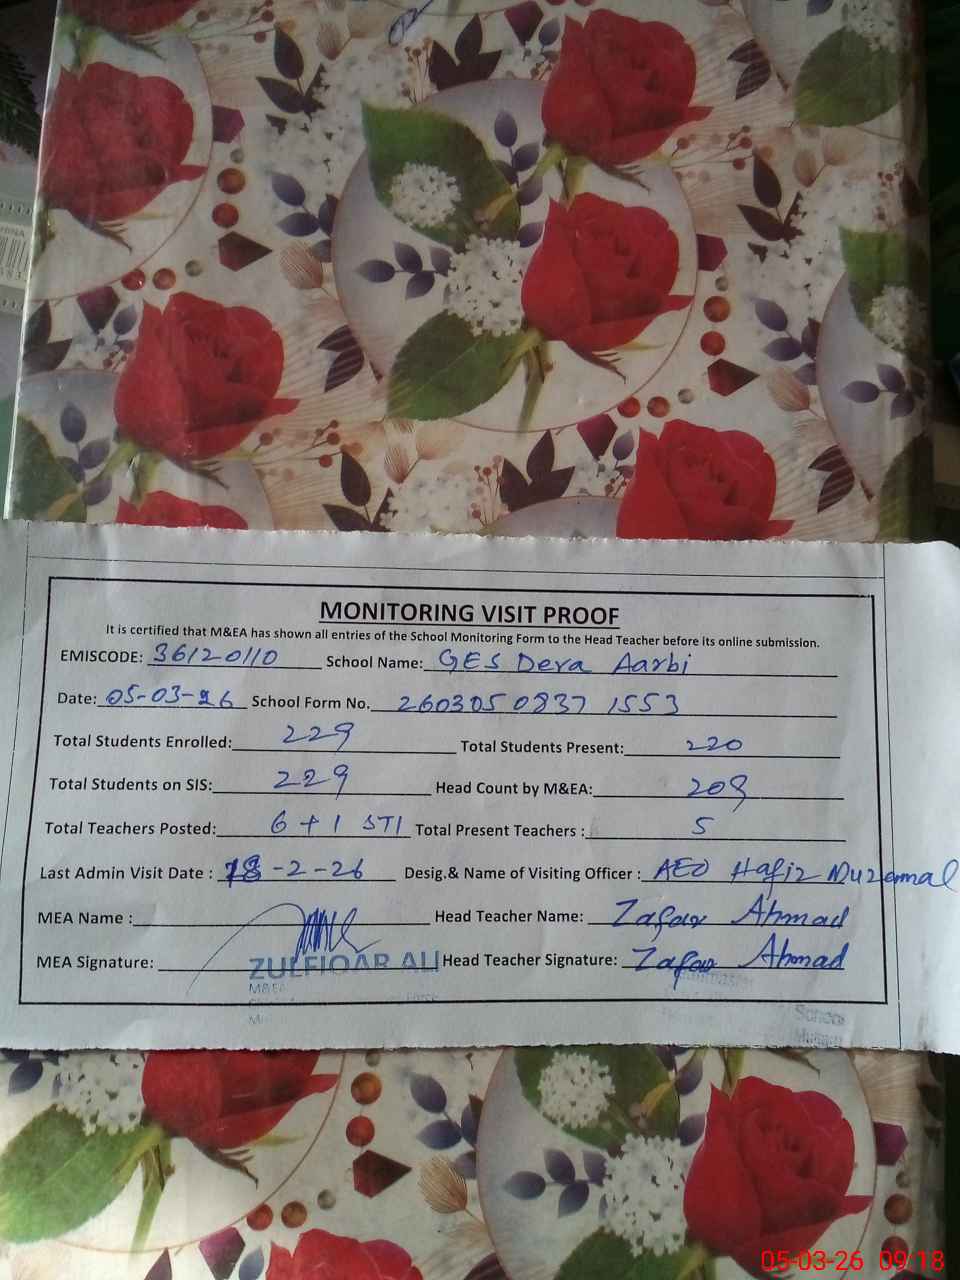 MONITORING VISIT PROOF
It is certified that M&EA has shown all entries of the School Monitoring Form to the Head Teacher before its online submission.
EMISCODE: 36120110 School Name: GES Dera Aarbi
Date: 05-03-26 School Form No. 2603050837 1553
Total Students Enrolled: 229 Total Students Present: 220
Total Students on SIS: 229 Head Count by M&EA: 209
Total Teachers Posted: 6 + 1 STI Total Present Teachers : 5
Last Admin Visit Date : 18-2-26 Desig.& Name of Visiting Officer : AEO Hafiz Muzammal
MEA Name : Head Teacher Name: Zafar Ahmad
MEA Signature: ZULFIQAR ALI Head Teacher Signature: Zafar Ahmad
M&EA
School
05-03-26 09:18